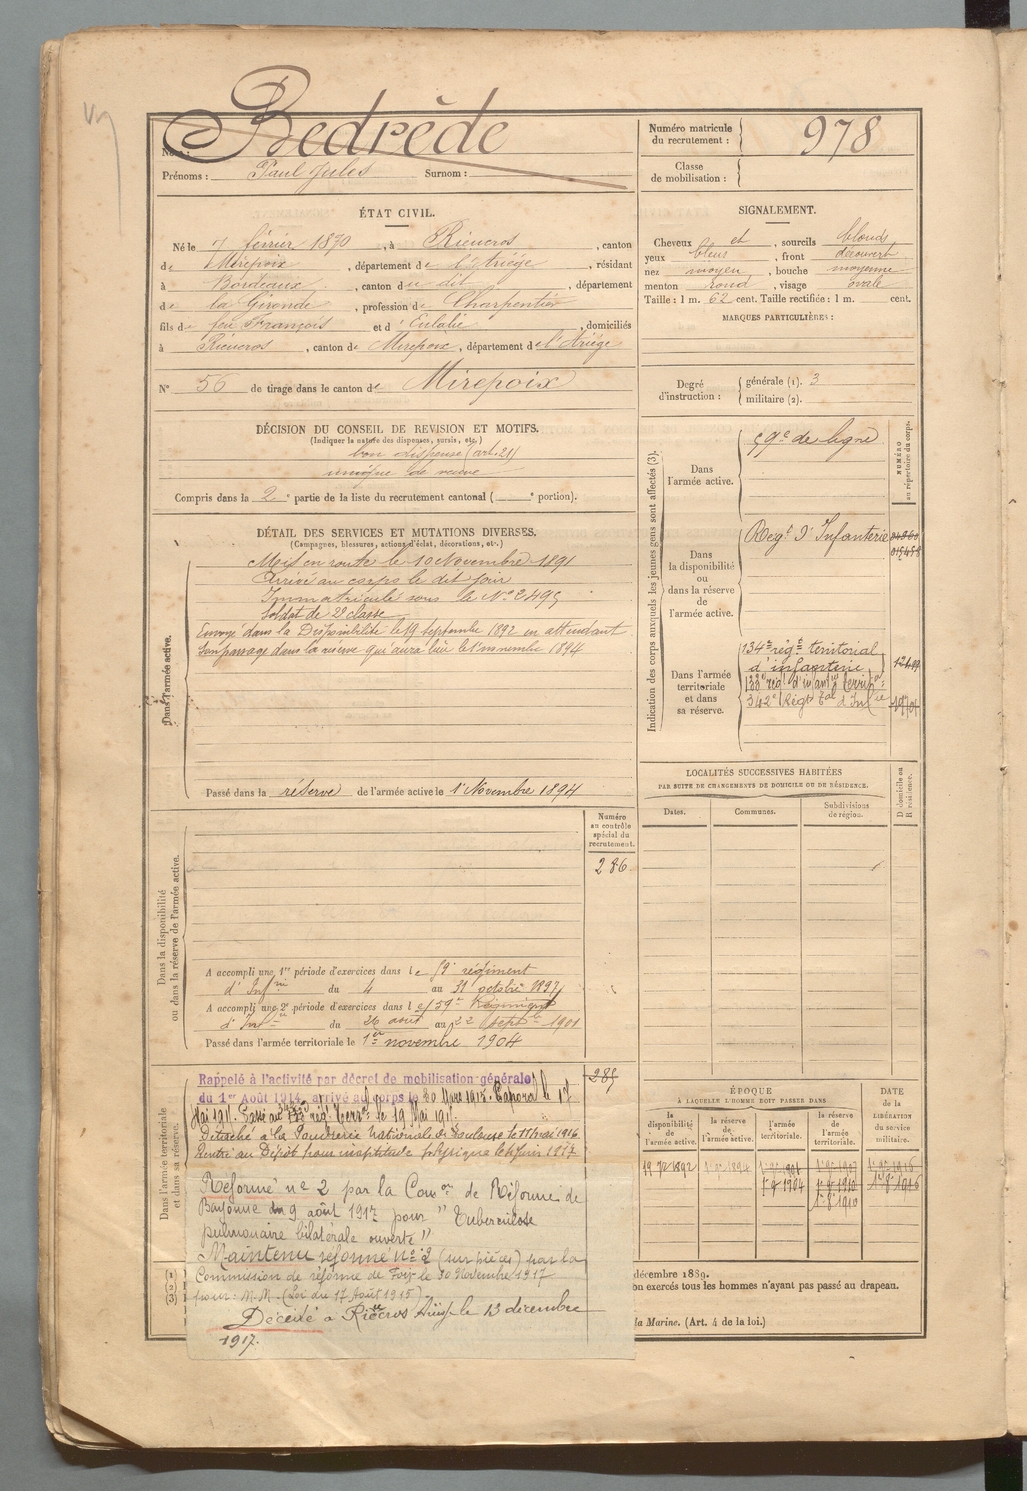 Bedrède
Nom :
Prénoms : Paul Jules Surnom :
Numéro matricule
du recrutement : 978
Classe
de mobilisation :
ÉTAT CIVIL.
Né le 7 février 1870, à Rieucros, canton
de Mirepoix, département de l'Ariége, résidant
à Bordeaux, canton du dit, département
de la Gironde, profession de Charpentier
fils de feu François et d'Eulalie, domiciliés
à Rieucros, canton de Mirepoix, département de l'Ariége
N° 56 de tirage dans le canton de Mirepoix
SIGNALEMENT.
Cheveux et, sourcils blonds
yeux bleus, front découvert
nez moyen, bouche moyenne
menton rond, visage ovale
Taille : 1 m. 62 cent. Taille rectifiée : 1 m. cent.
MARQUES PARTICULIÈRES :
Degré
d'instruction :
générale (1). 3
militaire (2).
DÉCISION DU CONSEIL DE REVISION ET MOTIFS.
(Indiquer la nature des dispenses, sursis, etc.)
bon dispensé (art. 21)
unique de veuve
Compris dans la 2e partie de la liste du recrutement cantonal ( e portion).
DÉTAIL DES SERVICES ET MUTATIONS DIVERSES.
(Campagnes, blessures, actions d'éclat, décorations, etc.)
Dans l'armée active.
Mis en route le 10 Novembre 1891
Arrivé au corps le dit jour
Immatriculé sous le N° 2495
Soldat de 2e classe
Envoyé dans la Disponibilité le 19 septembre 1892 en attendant
son passage dans la réserve qui aura lieu le 1er novembre 1894
Passé dans la réserve de l'armée active le 1er Novembre 1894
Indication des corps auxquels les jeunes gens sont affectés (3).
NUMÉRO
au répertoire du corps.
Dans
l'armée active.
59e de ligne
Dans
la disponibilité
ou
dans la réserve
de
l'armée active.
Regt d'Infanterie
015458
Dans l'armée
territoriale
et dans
sa réserve.
134e régt territorial
d'infanterie
133e régt d'infantie territ
342e Régt Tal d'Infie
LOCALITÉS SUCCESSIVES HABITÉES
PAR SUITE DE CHANGEMENTS DE DOMICILE OU DE RÉSIDENCE.
Dates.
Communes.
Subdivisions
de région.
D domicile ou
R résidence.
Numéro
au contrôle
spécial du
recrutement.
286
Dans la disponibilité
ou dans la réserve de l'armée active.
A accompli une 1re période d'exercices dans le 59e régiment
d'Infrie du 4 au 31 octobre 1897
A accompli une 2e période d'exercices dans le 59e Régiment
d'Infie du 26 août au 22 septbre 1901
Passé dans l'armée territoriale le 1er novembre 1904
Dans l'armée territoriale
et dans sa réserve.
285
Rappelé à l'activité par décret de mobilisation générale
du 1er Août 1914, arrivé au corps le 20 Mars 1915. Caporal le 17
Mai 1915. Passé au régt terral le 19 Mai 1915.
Détaché à la Poudrerie Nationale de Toulouse le 11 mai 1916
Rentré au Dépôt pour inaptitude physique le 6 juin 1917
Réformé n° 2 par la Comon de Réforme de
Bayonne du 9 août 1917 pour "Tuberculose
pulmonaire bilatérale ouverte"
Maintenu réformé n° 2 (sur pièces) par la
Commission de réforme de Foix le 30 Novembre 1917
pour : M.M. (Loi du 17 Août 1915)
Décédé à Rieucros Ariège le 13 décembre
1917.
ÉPOQUE
À LAQUELLE L'HOMME DOIT PASSER DANS
la
disponibilité
de
l'armée active.
la réserve
de
l'armée active.
l'armée
territoriale.
la réserve
de
l'armée
territoriale.
DATE
de la
LIBÉRATION
du service
militaire.
19 7re 1892
1er 9re 1894
1er 9re 1904
1er 8re 1910
1er 8re 1916
1
2
3
décembre 1889.
on exercés tous les hommes n'ayant pas passé au drapeau.
la Marine. (Art. 4 de la loi.)